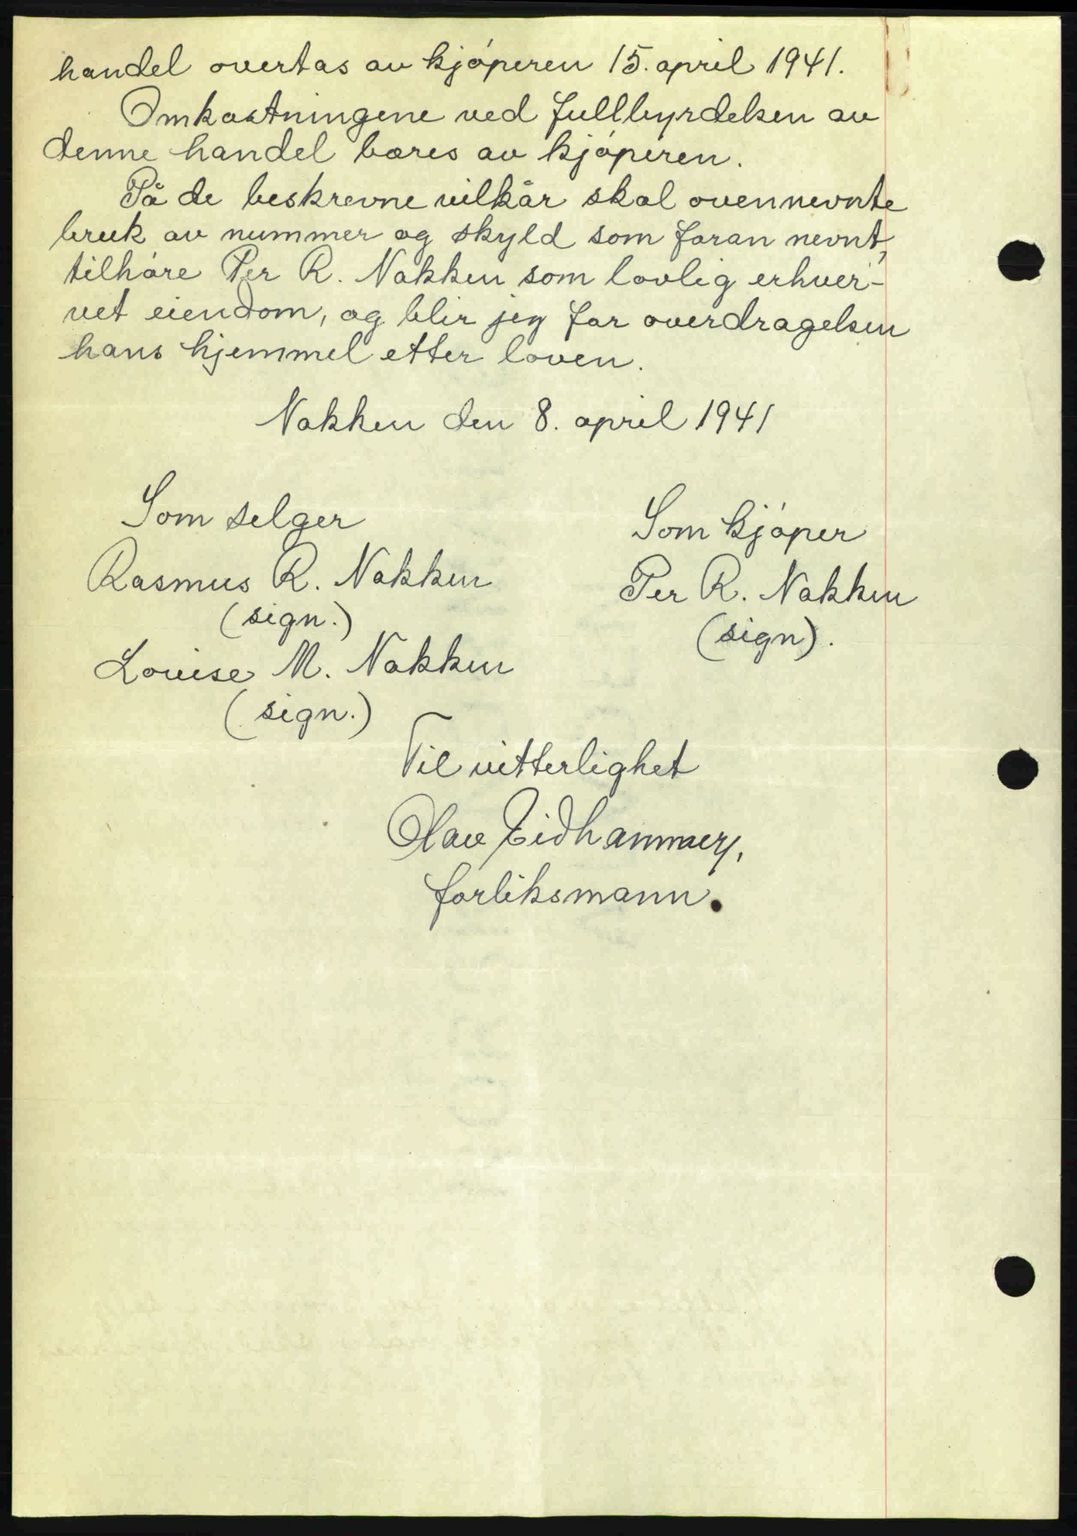 handel overtas av kjøperen 15. april 1941.
Omkostningene ved fullbyrdelsen av
denne handel bæres av kjøperen.
På de beskrevne vilkår skal ovennevnte
bruk av nummer og skyld som foran nevnt,
tilhøre Per R. Nakken som lovlig erhver-
vet eiendom, og blir jeg for overdragelsen
hans hjemmel etter loven.
Nakken den 8. april 1941
Som selger
Rasmus R. Nakken
(sign.)
Louise M. Nakken
(sign.)
Som kjøper
Per R. Nakken
(sign).
Til vitterlighet
Olav Eidhammer,
forliksmann.